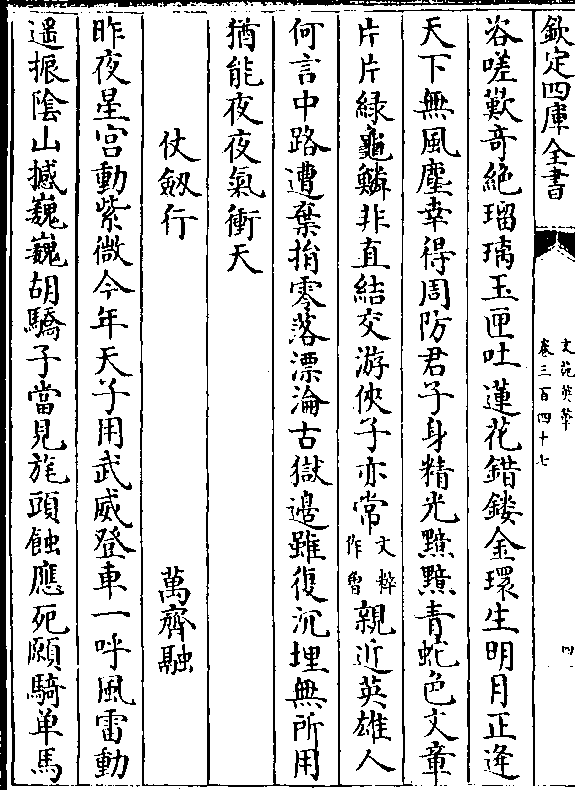 欽定四庫全書
文苑英華
卷三百四十七
四
咨嗟歎奇絶瑠璃玉匣吐蓮花錯鏤金環生明月正逢
天下無風塵幸得周防君子身精光黯黯青蛇色文章
片片緑龜鱗非直結交游俠子亦常文粹作曽親近英雄人
何言中路遭棄捐零落漂淪古獄邉雖復沉埋無所用
猶能夜夜氣衝天
仗劒行
萬齊融
昨夜星宫動紫微今年天子用武威登車一呼風雷動
遥振陰山撼巍巍胡驕子當見旄頭蝕應死願騎单馬